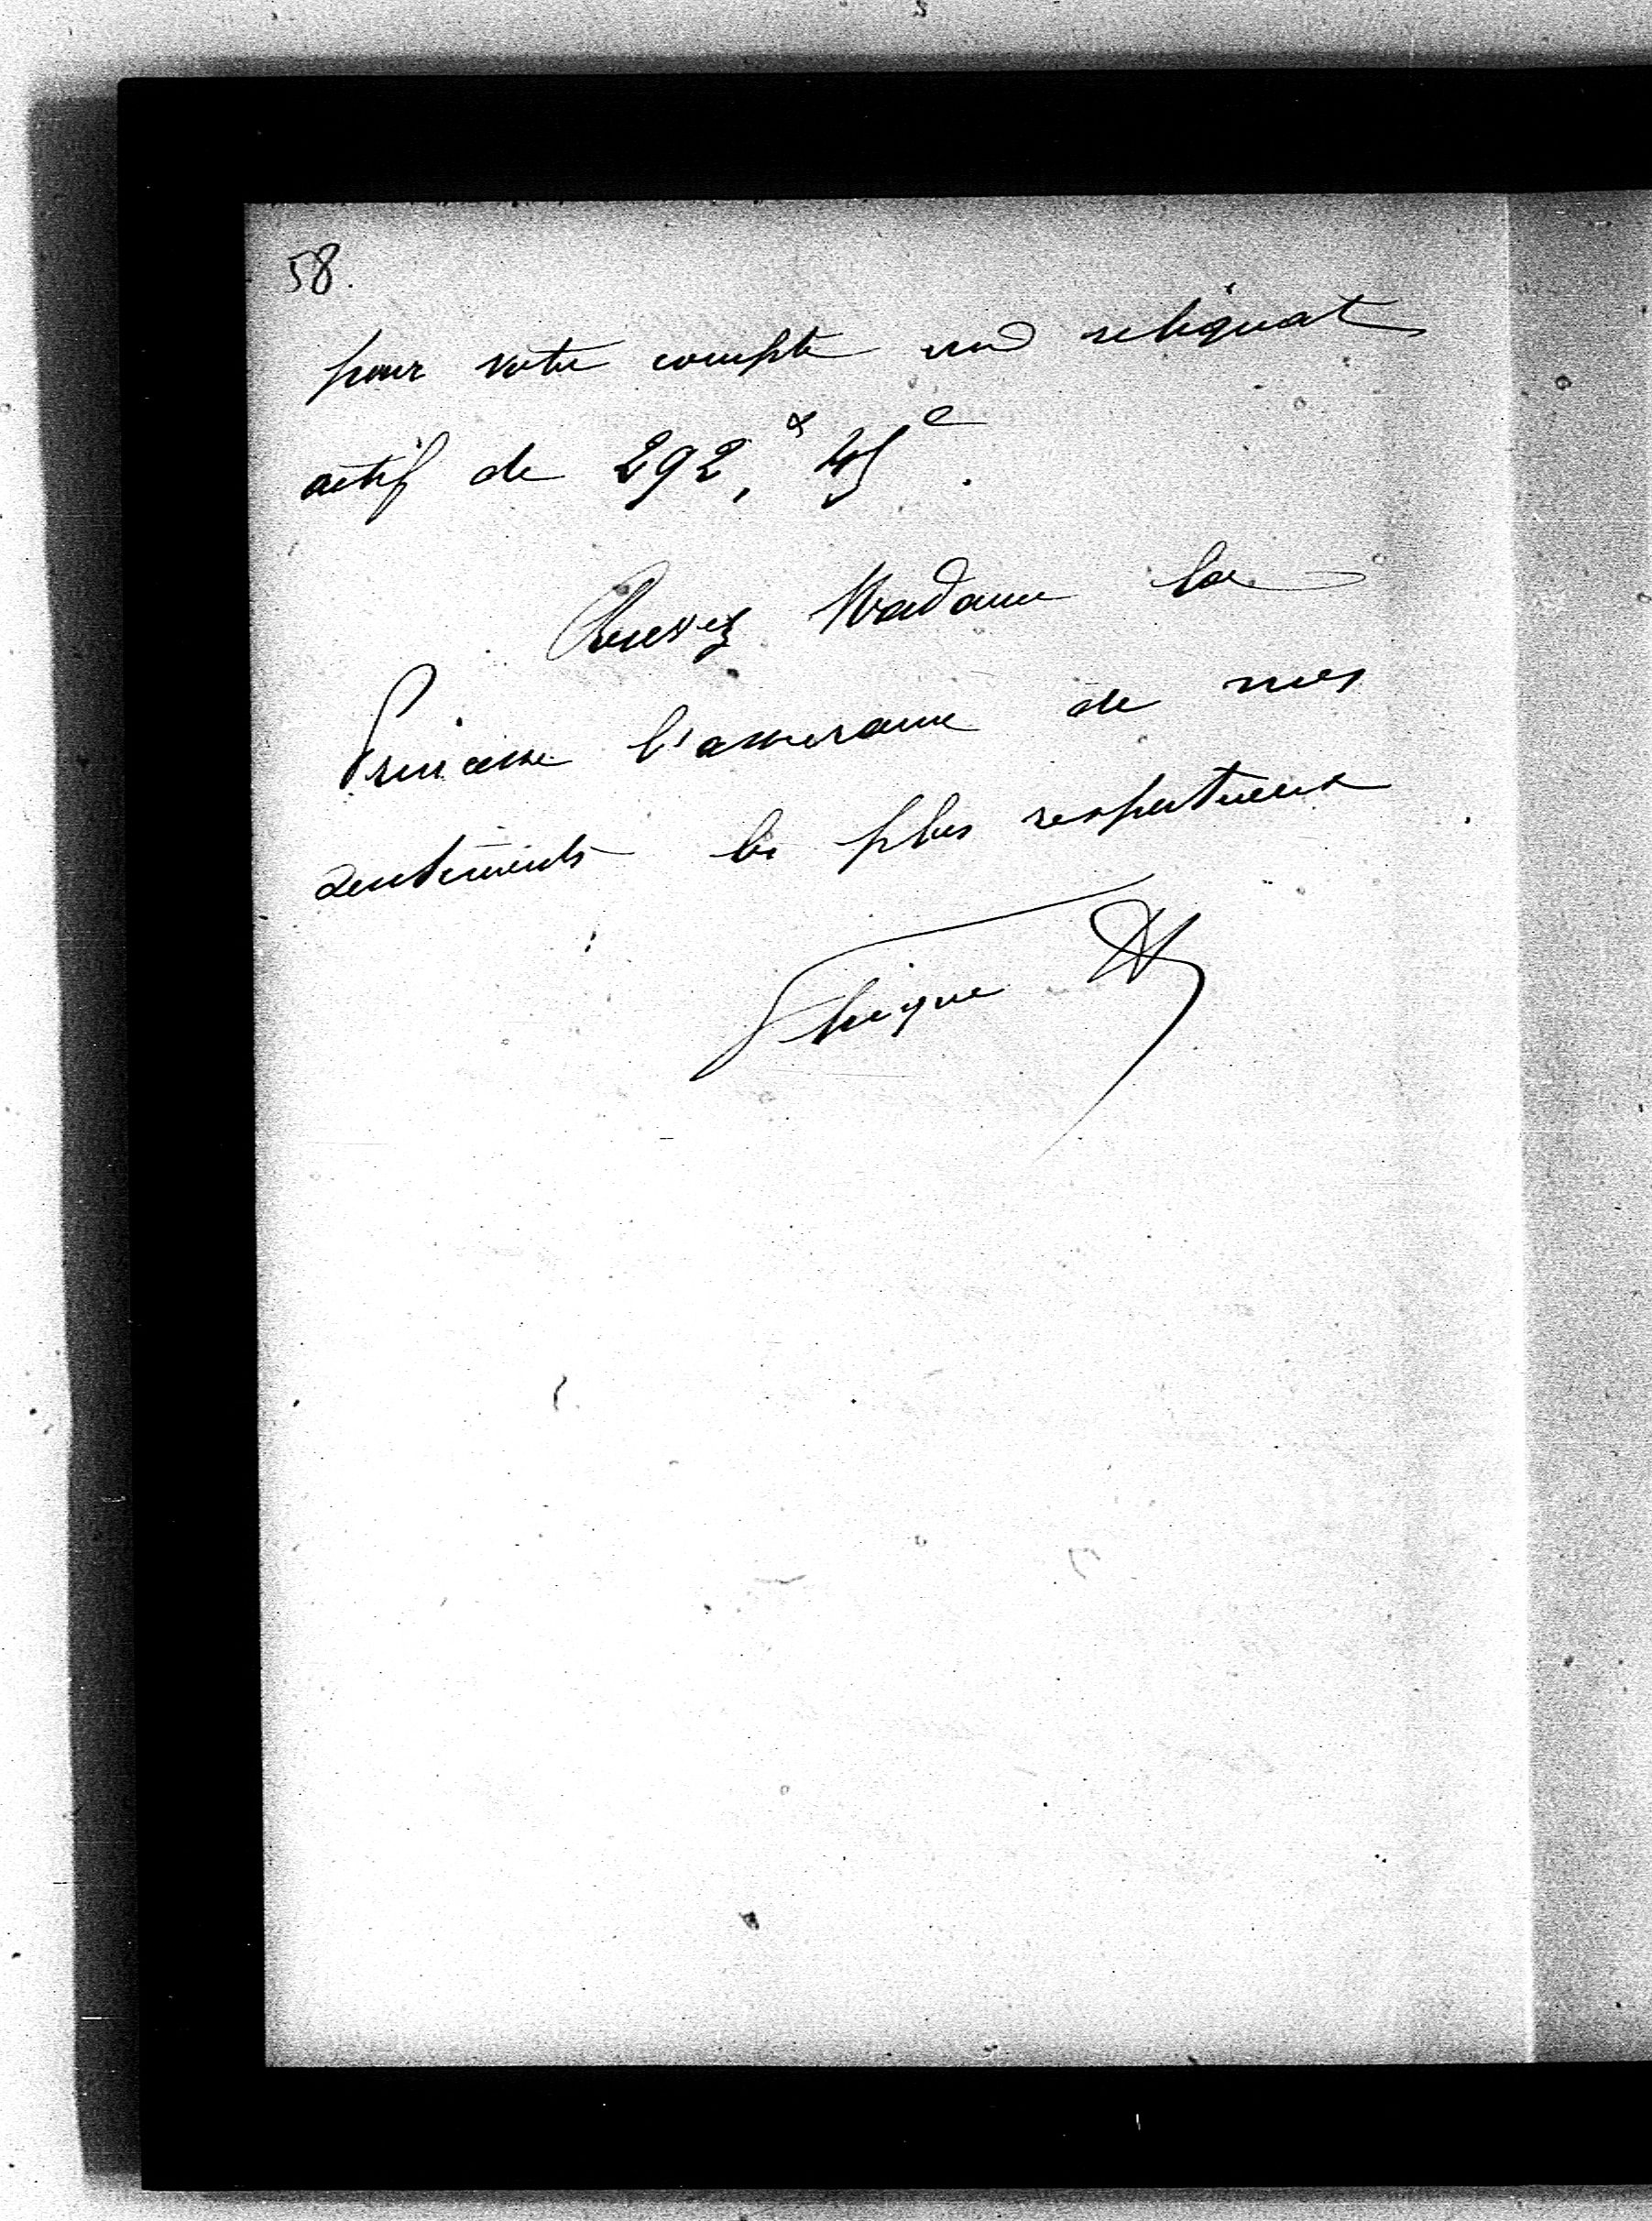 58.
pour votre compte un reliquat
actif de 292, 45 c.
Madame la
Princesse l'assurance de mes
sentiments les plus respectueux